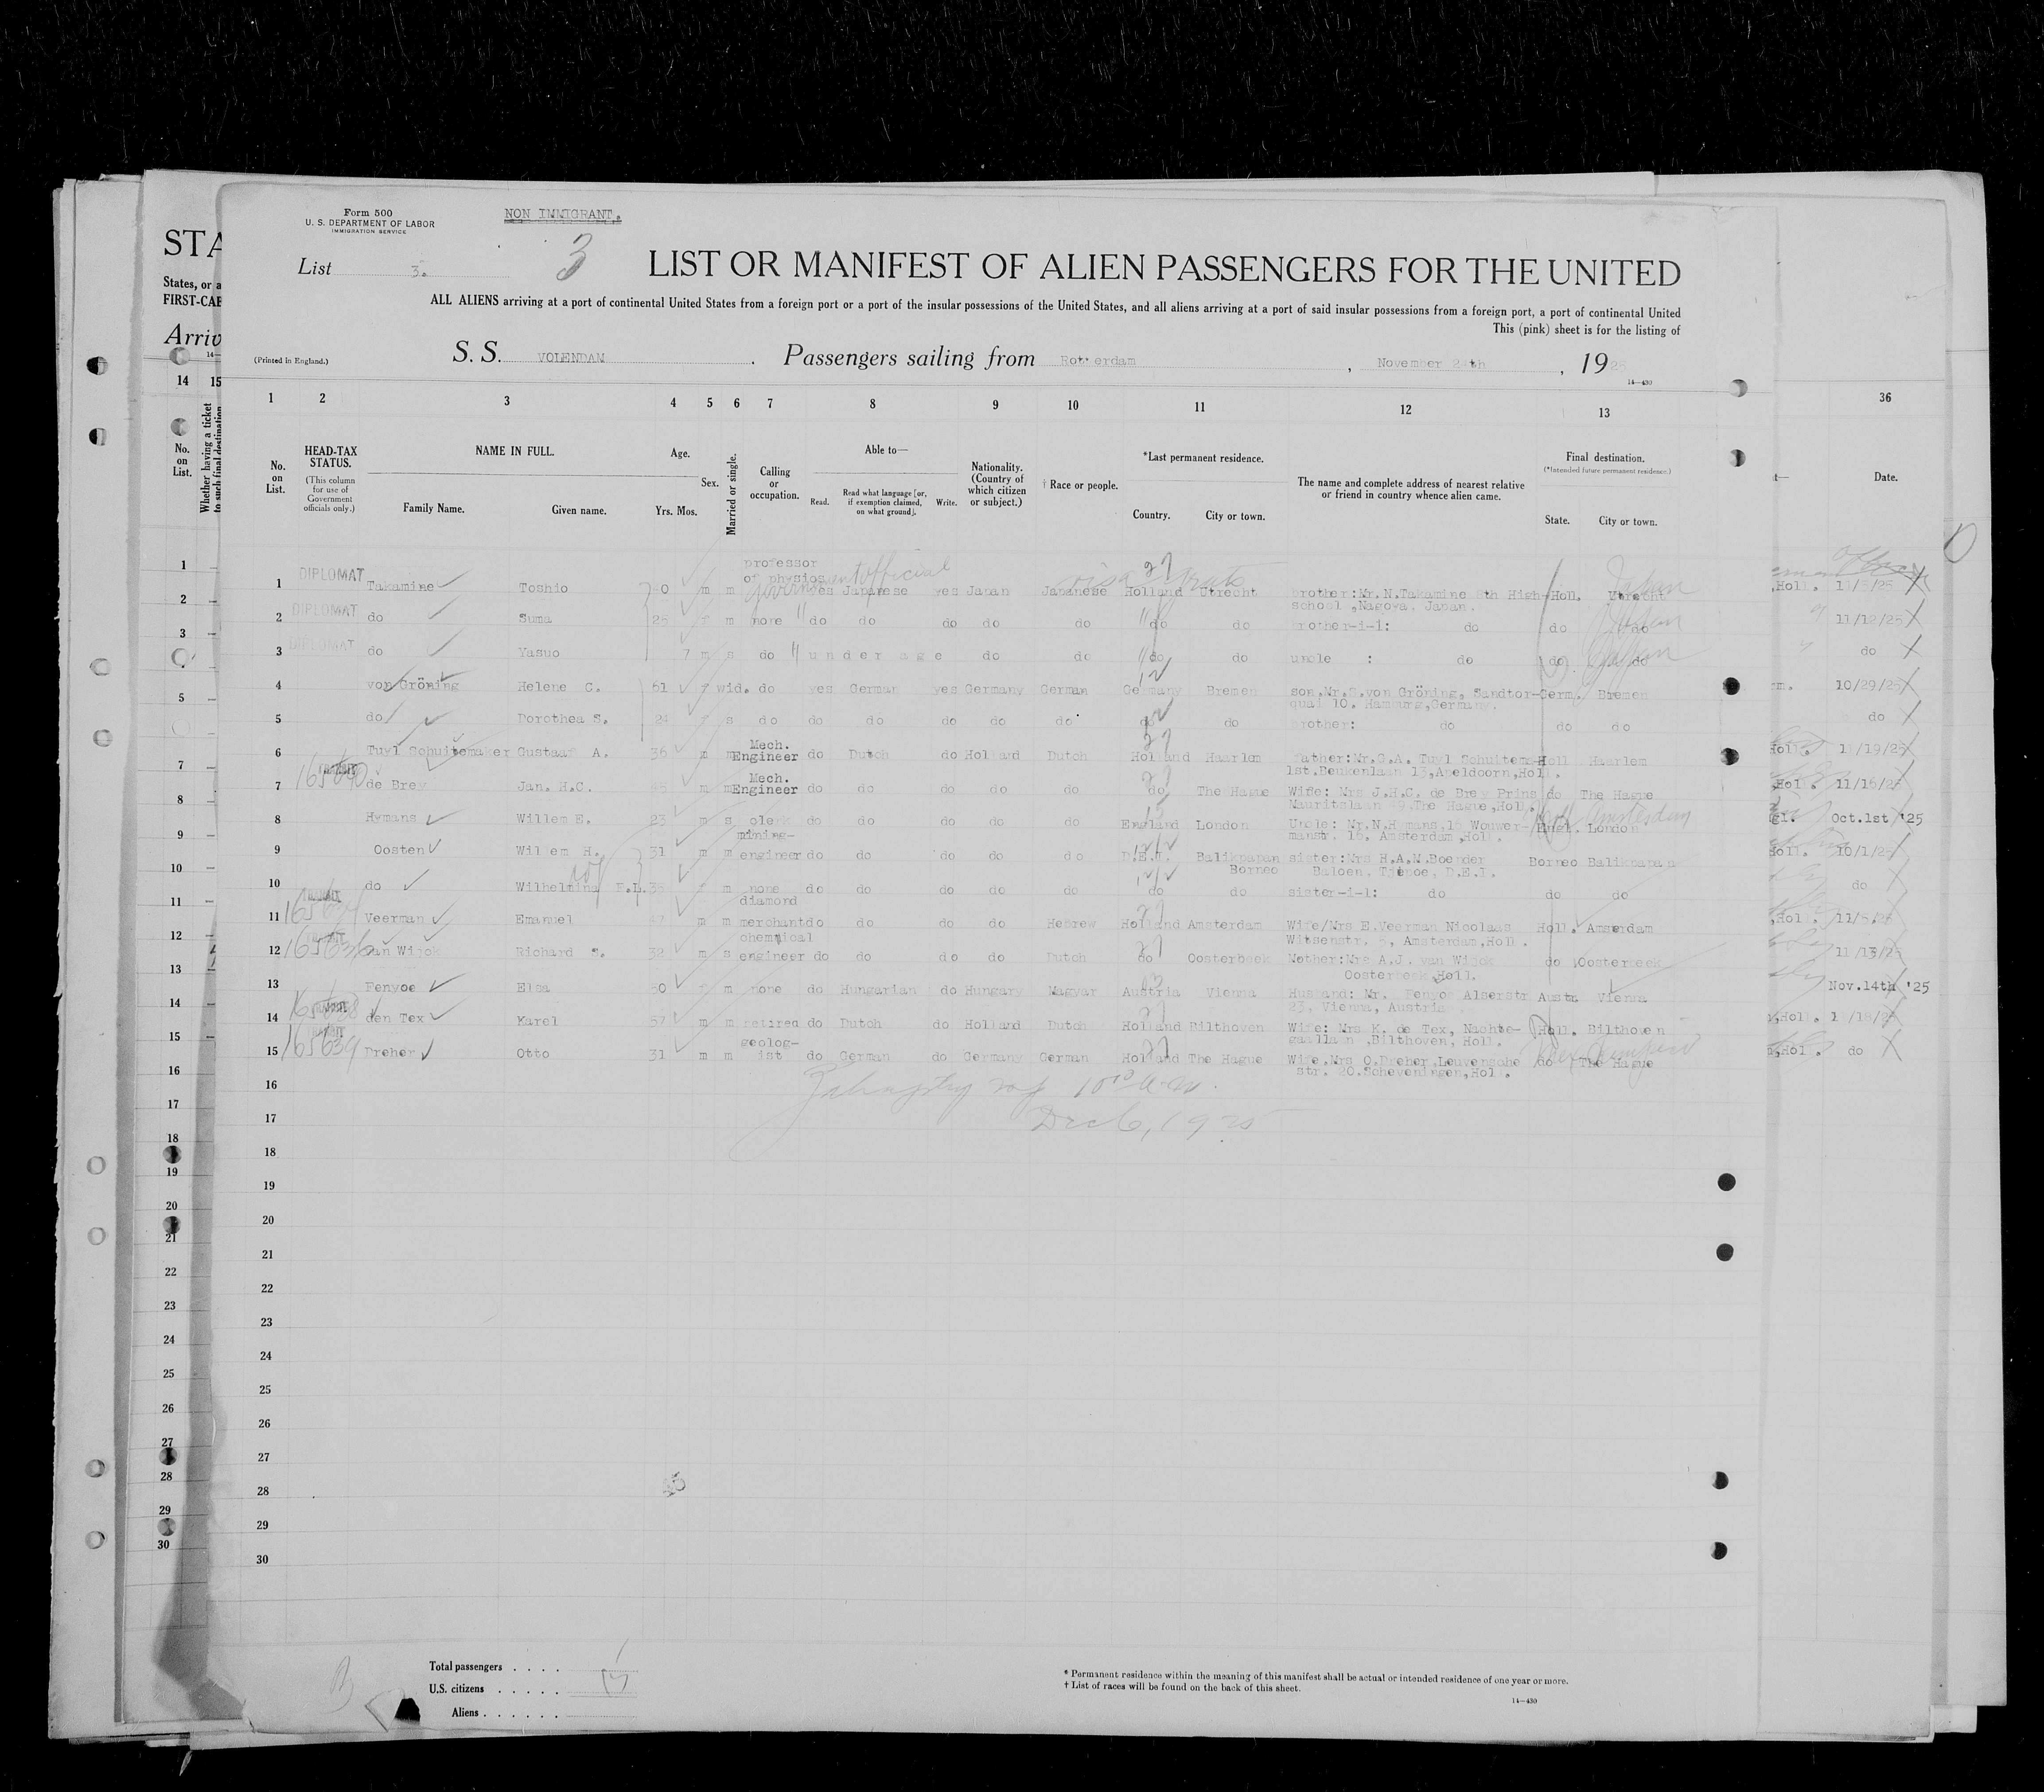 Form 500
U. S. DEPARTMENT OF LABOR
IMMIGRATION SERVICE
NON IMMIGRANT.
STA
List 3. 3
LIST OR MANIFEST OF ALIEN PASSENGERS FOR THE UNITED
States, or a
FIRST-CAB
ALL ALIENS arriving at a port of continental United States from a foreign port or a port of the insular possessions of the United States, and all aliens arriving at a port of said insular possessions from a foreign port, a port of continental United
This (pink) sheet is for the listing of
Arriv
(Printed in England.)
S. S. VOLENDAM . Passengers sailing from Rotterdam , November 24th , 1925
14—430
14 15 1 2 3 4 5 6 7 8 9 10 11 12 13 36
No. on List.
Whether having a ticket to such final destination
No. on List.
HEAD-TAX STATUS.
(This column for use of Government officials only.)
NAME IN FULL.
Family Name. Given name.
Age.
Yrs. Mos.
Sex.
Married or single.
Calling or occupation.
Able to—
Read. Read what language [or, if exemption claimed, on what ground]. Write.
Nationality. (Country of which citizen or subject.)
† Race or people.
*Last permanent residence.
Country. City or town.
The name and complete address of nearest relative or friend in country whence alien came.
Final destination.
(*Intended future permanent residence.)
State. City or town.
Date.
professor
of physics
government official
1 DIPLOMAT Takamine Toshio 40 m m yes Japanese yes Japan Japanese Holland Utrecht brother:Mr.N.Takamine 8th High- Holl. Utrecht Japan ,Holl. 11/5/25
school ,Nagoya. Japan.
2 DIPLOMAT do Suma 25 f m none do do do do do do do brother-i-l: do do do Japan 11/12/25
3 DIPLOMAT do Yasuo 7 m s do under age do do do do uncle : do do do Japan do
4 von Gröning Helene C. 61 f wid. do yes German yes Germany German Germany Bremen son,Mr.R.von Gröning, Sandtor- Germ. Bremen 10/29/25
quai 10. Hamburg,Germany.
5 do Dorothea S. 24 f s do do do do do do do do brother: do do do do
Mech.
6 Tuyl Schuitemaker Gustaaf A. 36 m m Engineer do Dutch do Holland Dutch Holland Haarlem Father:Mr.G.A. Tuyl Schuitema- Holl Haarlem Holl. 11/19/25
1st.Beukenlaan 13,Apeldoorn,Holl.
TRANSIT
Mech.
7 de Brey Jan. H.C. 45 m m Engineer do do do do do do The Hague Wife: Mrs J.H.C. de Brey Prins do The Hague ,Holl. 11/16/25
Mauritslaan 49,The Hague,Holl.
8 Hymans Willem E. 23 m s clerk do do do do do England London Uncle: Mr.N.Hymans,15 Wouwer- Engl. London Amsterdam Oct.1st '25
manstr. 15, Amsterdam,Holl.
mining-
9 Oosten Willem H. 31 m m engineer do do do do do D.E.I. Balikpapan sister:Mrs H.A.M.Boerder Borneo Balikpapan Holl. 10/1/25
Borneo Baloen. Tjepoe, D.E.I.
10 do Wilhelmina F.L. 35 f m none do do do do do do do sister-i-l: do do do do
TRANSIT
diamond
11 Veerman Emanuel 47 m m merchant do do do do Hebrew Holland Amsterdam Wife/Mrs E.Veerman Nicolaas Holl. Amsterdam ,Holl. 11/5.25
Witsenstr. 5, Amsterdam,Holl.
TRANSIT
chemical
12 165636 van Wijck Richard S. 32 m s engineer do do do do Dutch do Oosterbeek Mother:Mrs A.J. van Wijck do Oosterbeek 11/13/25
Oosterbeek,Holl.
13 Fenyoe Elsa 50 f m none do Hungarian do Hungary Magyar Austria Vienna Husband: Mr. Fenyoe Alserstr Austr. Vienna Nov.14th '25
23, Vienna, Austria.
TRANSIT
14 165638 den Tex Karel 57 m m retired do Dutch do Holland Dutch Holland Bilthoven Wife: Mrs K. de Tex, Nachte- Holl. Bilthoven ,Holl. 11/18/25
gaallaan ,Bilthoven, Holl.
TRANSIT
geolog-
15 165639 Dreher Otto 31 m m ist do German do Germany German Holland The Hague Wife.Mrs O.Dreher,Leuvensche do The Hague ,Hol. do
str. 20.Scheveningen,Holl.
16
10 A.M.
17
Dec 6, 1925
18
19
20
21
22
23
24
25
26
27
28
29
30
Total passengers . . . .
U.S. citizens . . . . .
Aliens . . . . . .
* Permanent residence within the meaning of this manifest shall be actual or intended residence of one year or more.
† List of races will be found on the back of this sheet.
14—430